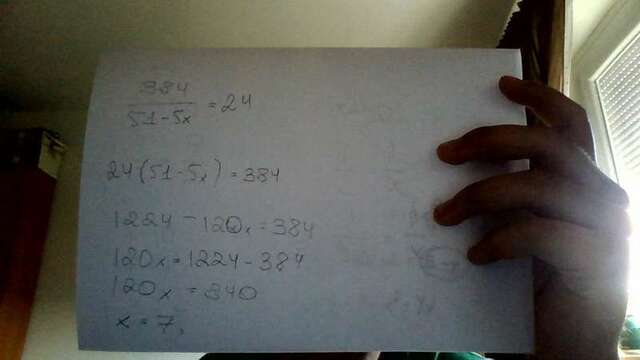 384
51-5x = 24
24(51-5x)=384
1224-120x=384
120x=1224-384
120x=840
x=7,